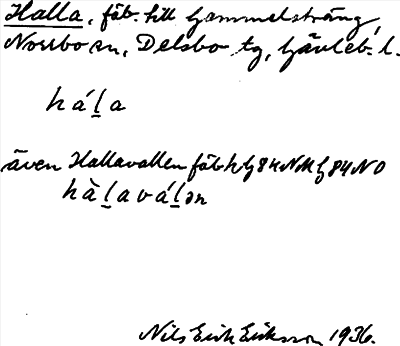 Halla, fäb. till Gammelsträng,
Norrbo sn, Delsbo tg, Gävleb. l.
há́l̲a
även Hallavallen fäb
hàl̲avál̲ən
Nils Erik Eriksson 1936.